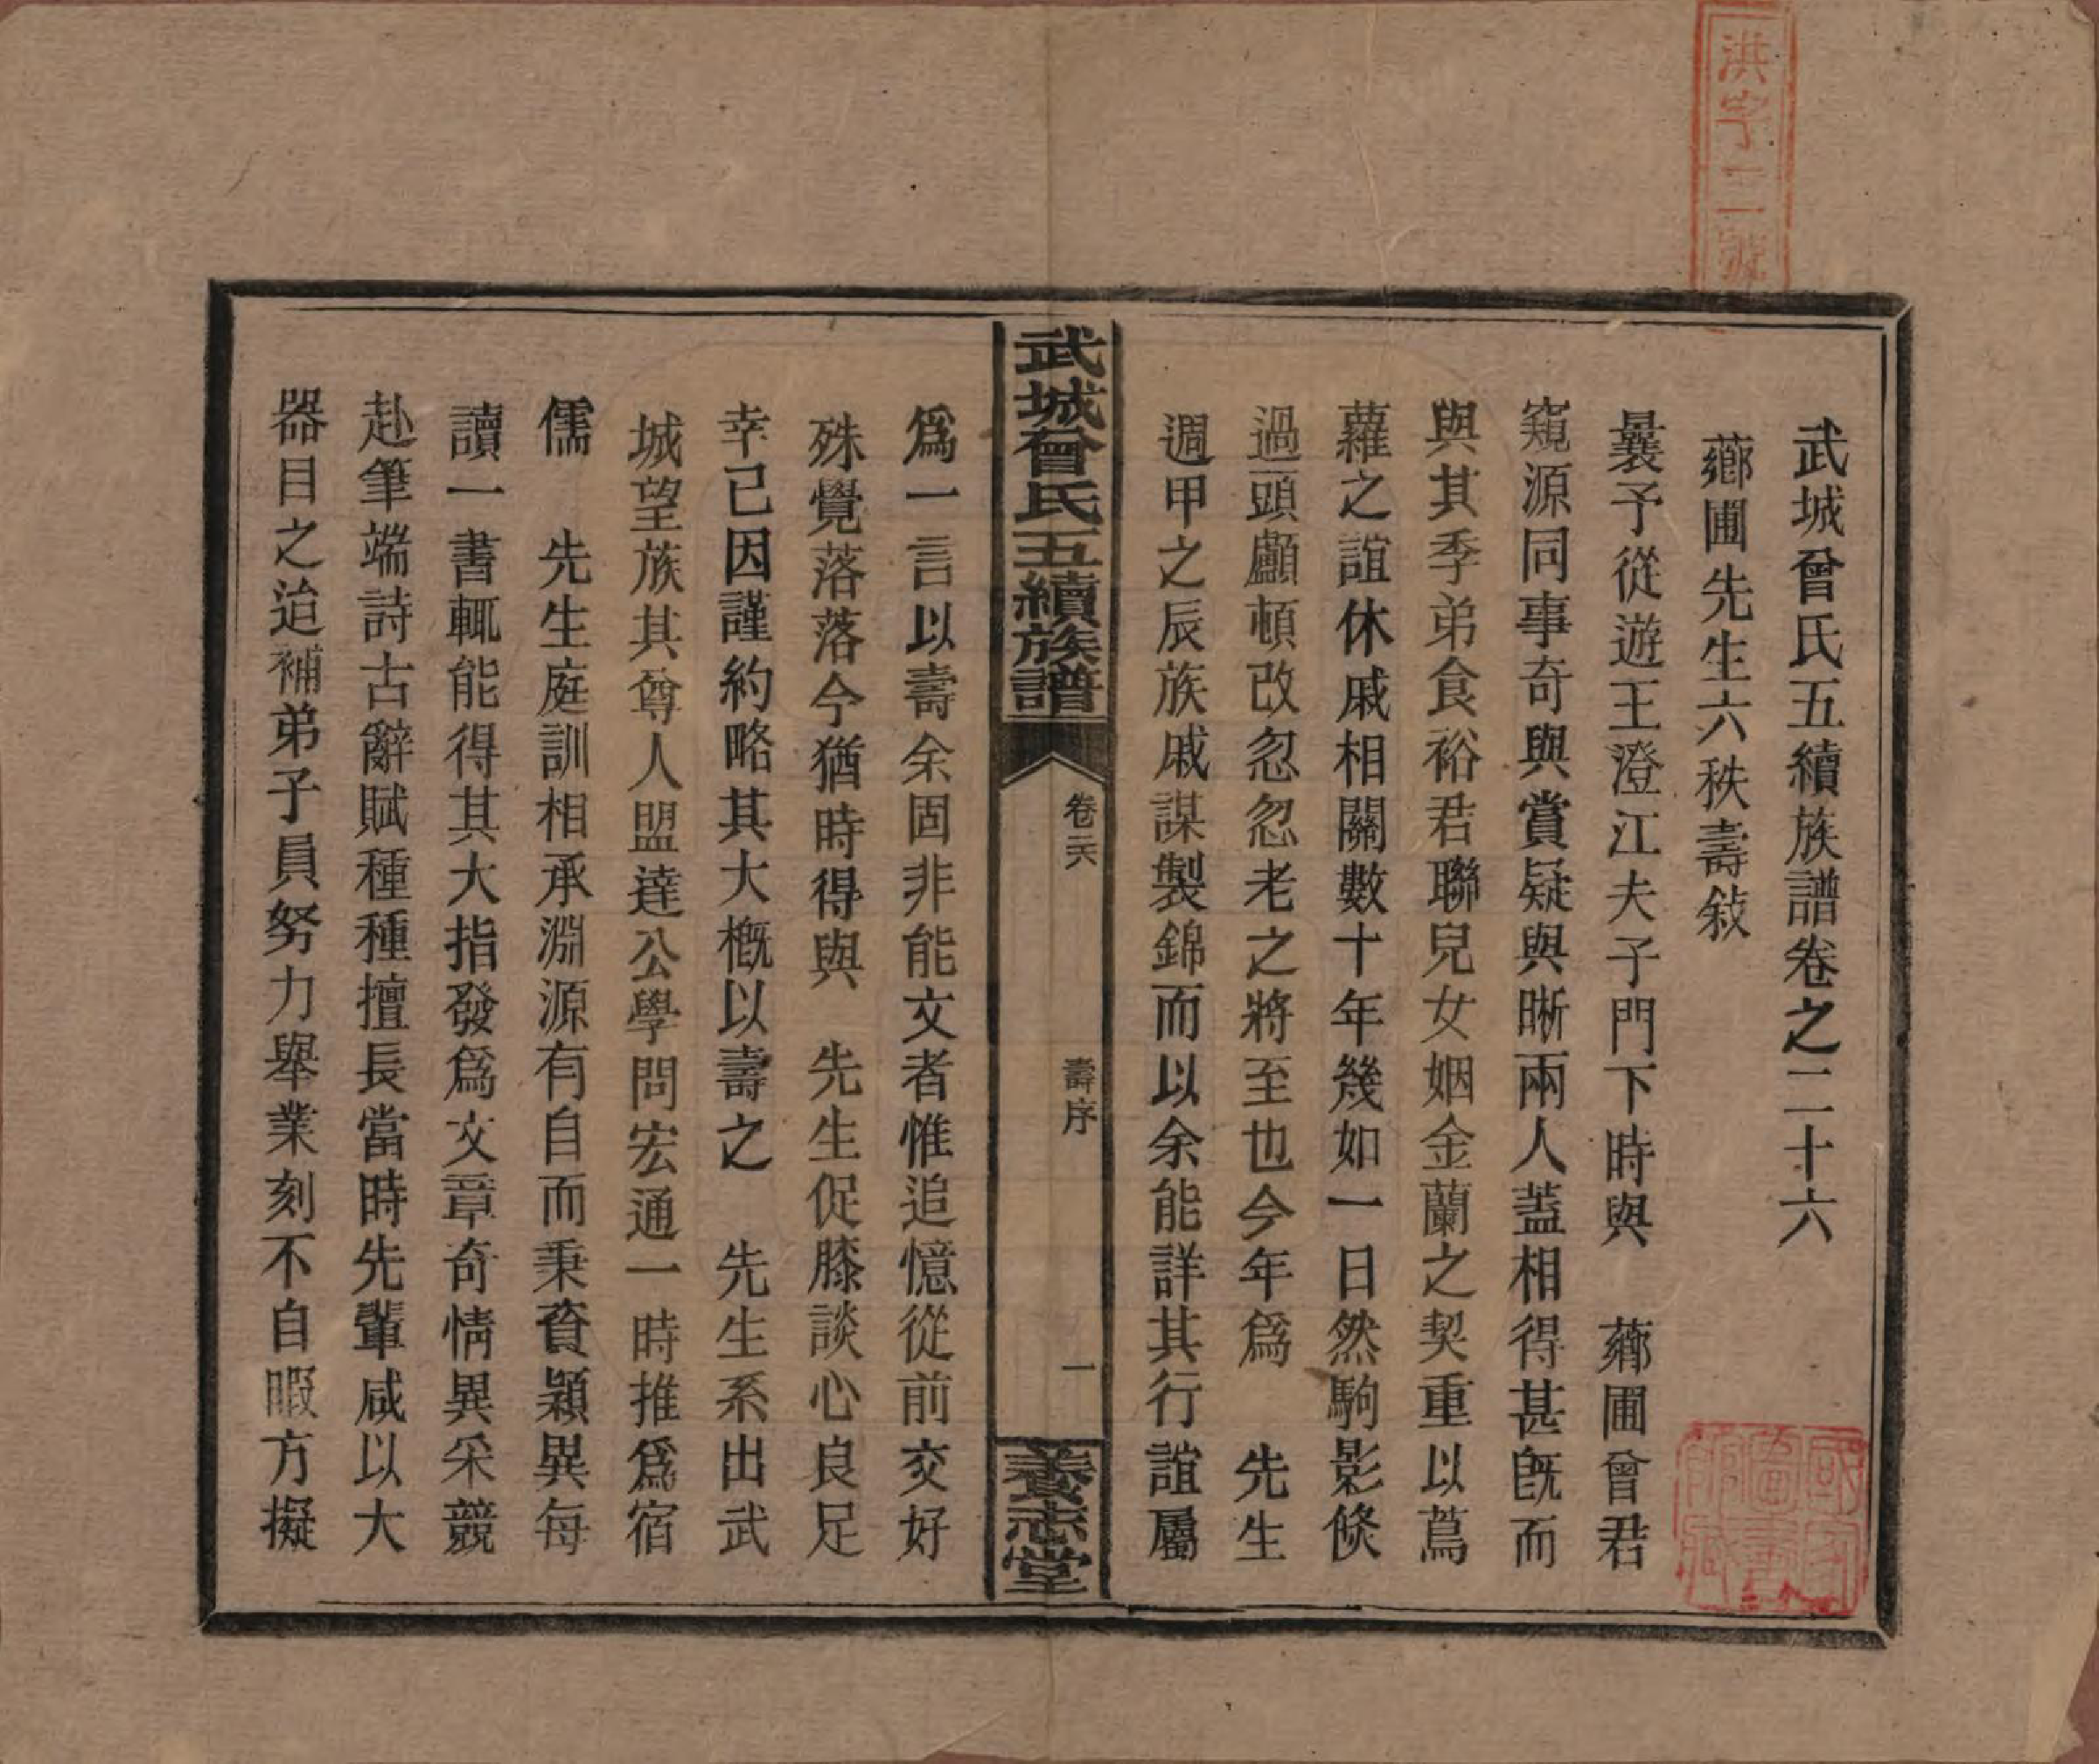 洪字二號
武城曾氏五續族譜卷之二十六
薌圃先生六秩壽敍
曩予從遊王澄江夫子門下時與　薌圃曾君
窺源同事奇與賞疑與晰兩人蓋相得甚旣而
與其季弟食裕君聯兒女姻金蘭之契重以蔦
蘿之誼休戚相關數十年幾如一日然駒影倐
過頭顱頓改忽忽老之將至也今年爲　先生
週甲之辰族戚謀製錦而以余能詳其行誼屬
武城曾氏五續族譜
卷二六
壽序
一
養志堂
爲一言以壽余固非能文者惟追憶從前交好
殊覺落落今猶時得與　先生促膝談心良足
幸已因謹約略其大槪以壽之　先生系出武
城望族其尊人盟達公學問宏通一時推爲宿
儒　先生庭訓相承淵源有自而秉資穎異每
讀一書輒能得其大指發爲文章奇情異采競
赴筆端詩古辭賦種種擅長當時先輩咸以大
器目之迨補弟子員努力舉業刻不自暇方擬